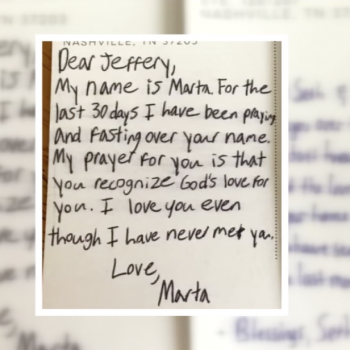 NASHVILLE, TN 37203
Dear Jeffery,
My name is Marta. For the
last 30 days I have been praying
and fasting over your name.
My prayer for you is that
you recognize God's love for
you. I love you even
though I have never met you.
Love,
Marta